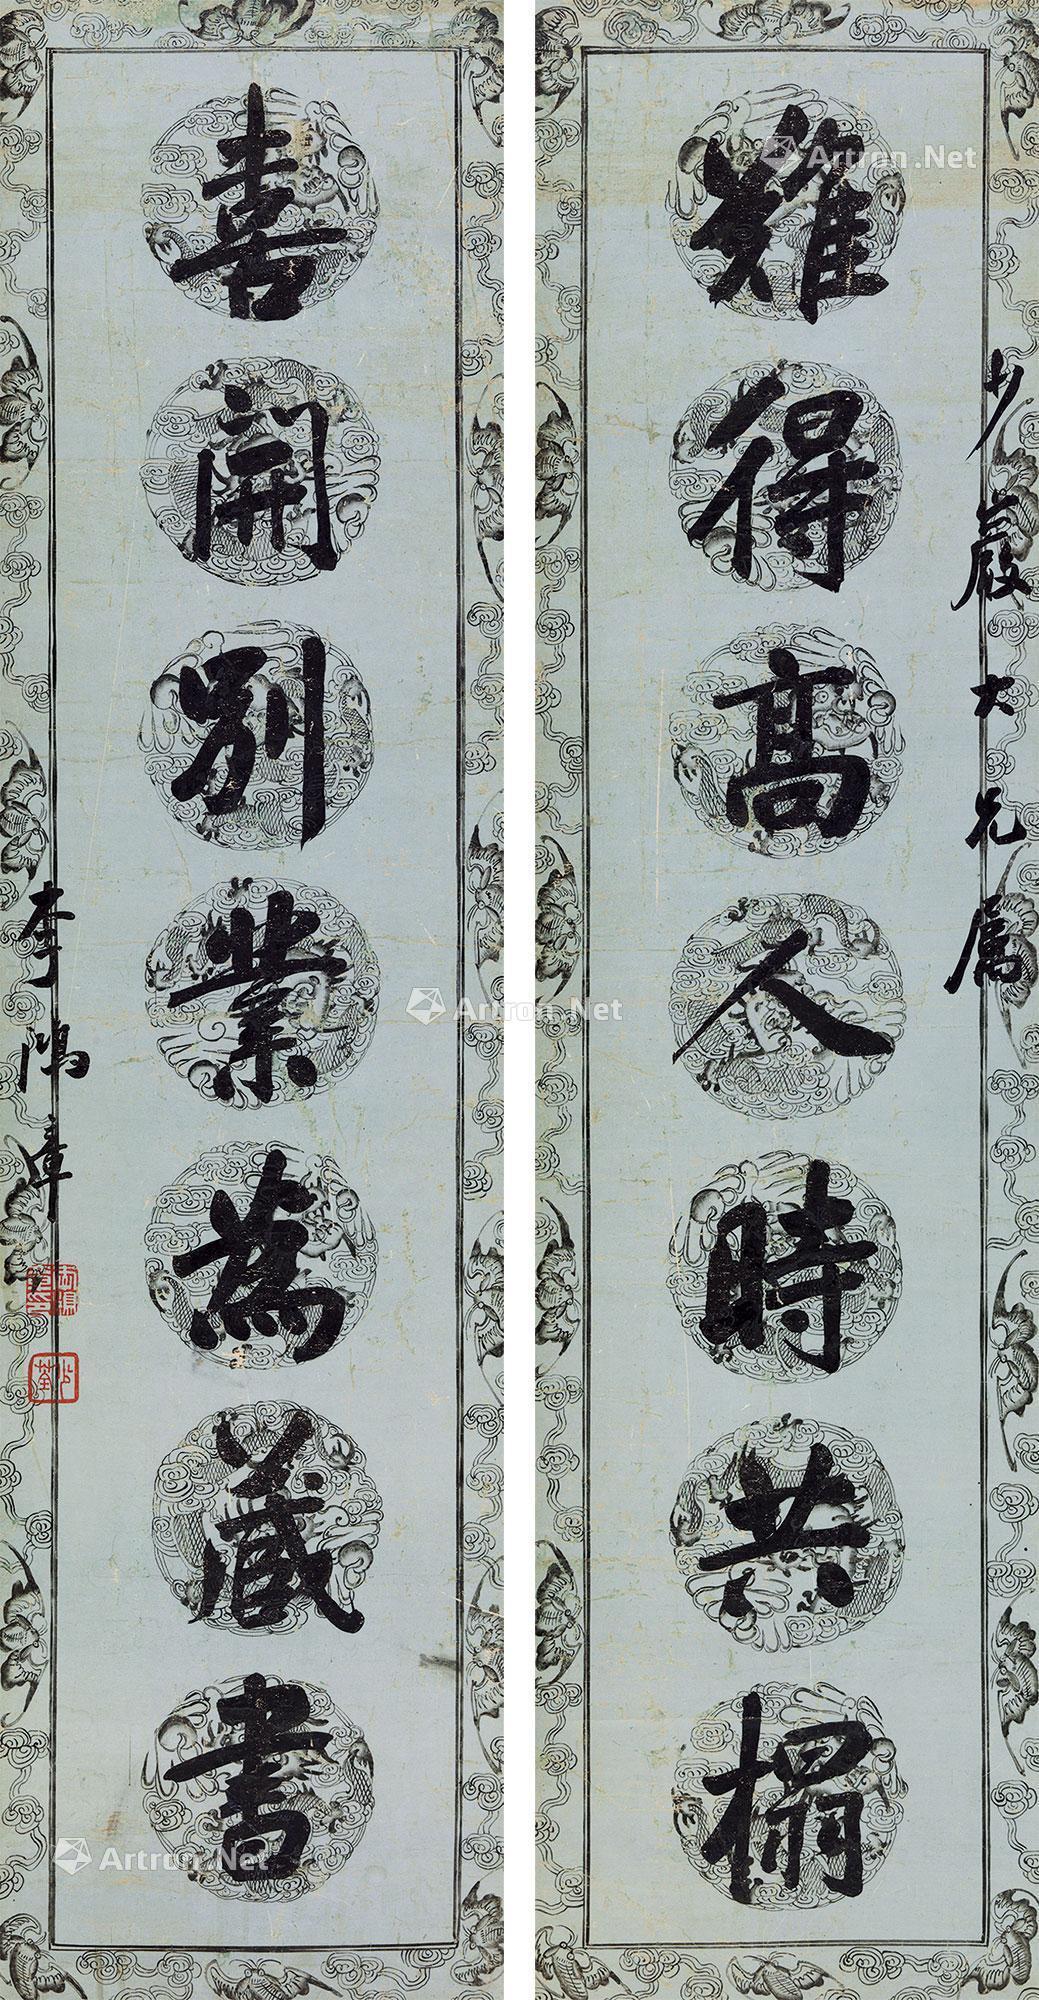 少巖大兄属
難得高人時共榻
喜開別業為藏書
李鴻章
Artron.Net
Artron.Net
Artron.Net